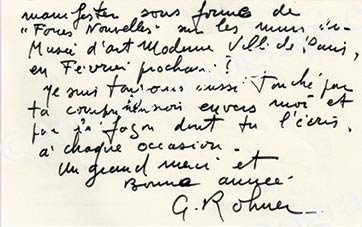 manifester sous forme de
"Forces Nouvelles" sur les murs du
Musée d'art Moderne Ville de Paris,
en Février prochain?
Je suis toujours aussi touché par
ta compréhension envers moi et
par la façon dont tu l'écris,
à chaque occasion.
Un grand merci et
Bonne année.
G. Rohner